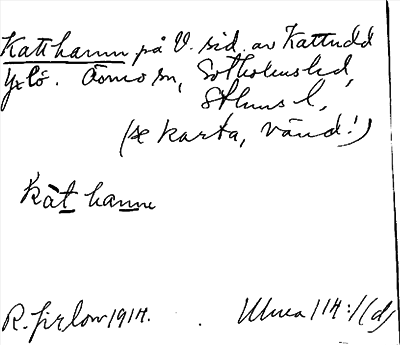 Katthamn på V. sid. av Kattudd
Yxlö. Ösmo sn, Sotholms hd,
Sthms l.
(se karta, vänd!)
kàt hamn
R. Jirlow 1914. 114:1(d)